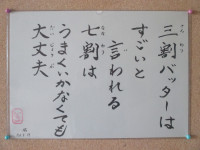 三割バッターは
すごいと
言われる
七割は
うまくいかなくても
大丈夫